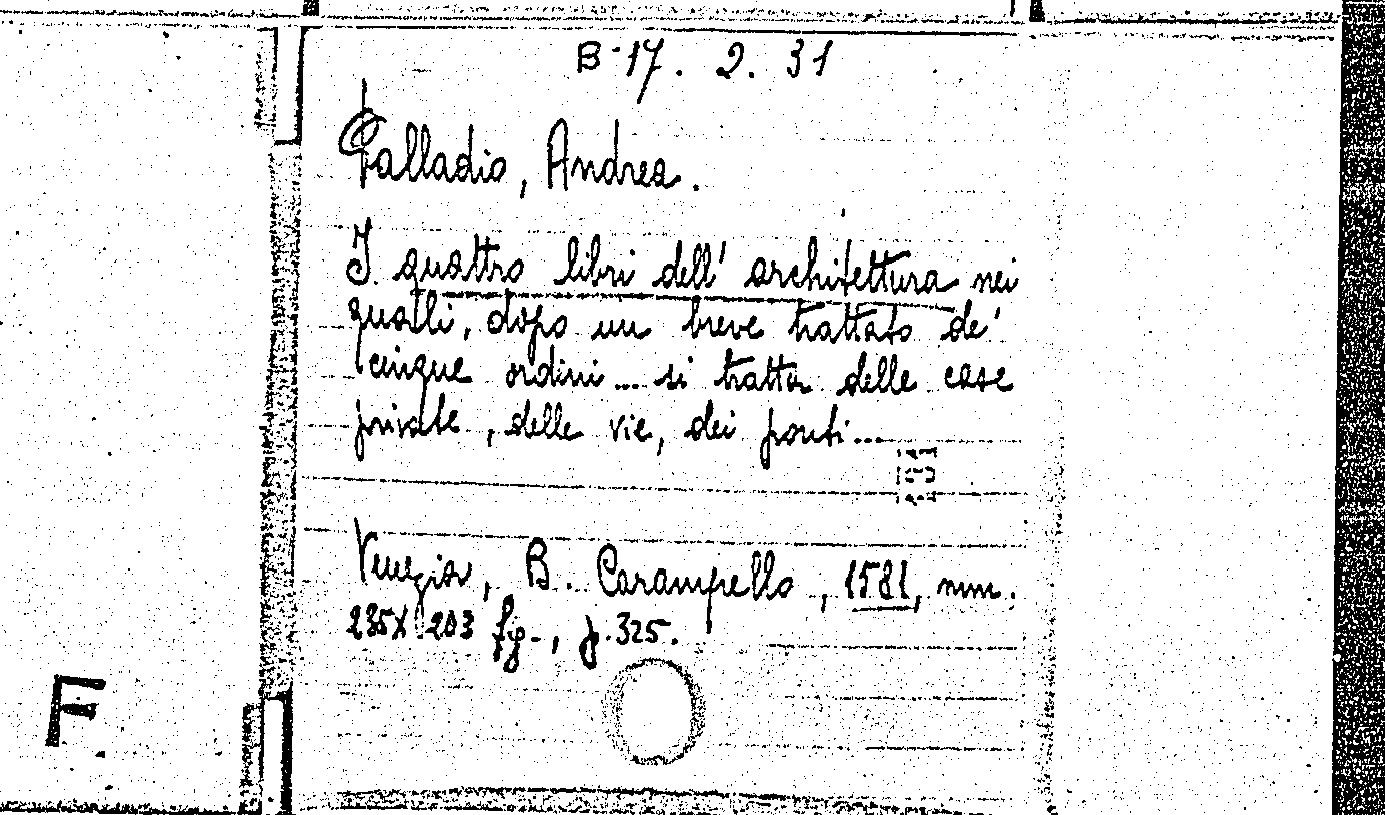 B-17. 2. 31
Palladio, Andrea.
I quattro libri dell' architettura nei
quali, dopo un breve trattato de'
cinque ordini... si tratta delle case
private, delle vie, dei ponti...
Venezia, B. Carampello, 1581, mm.
285X 203 fg., p. 325.
F